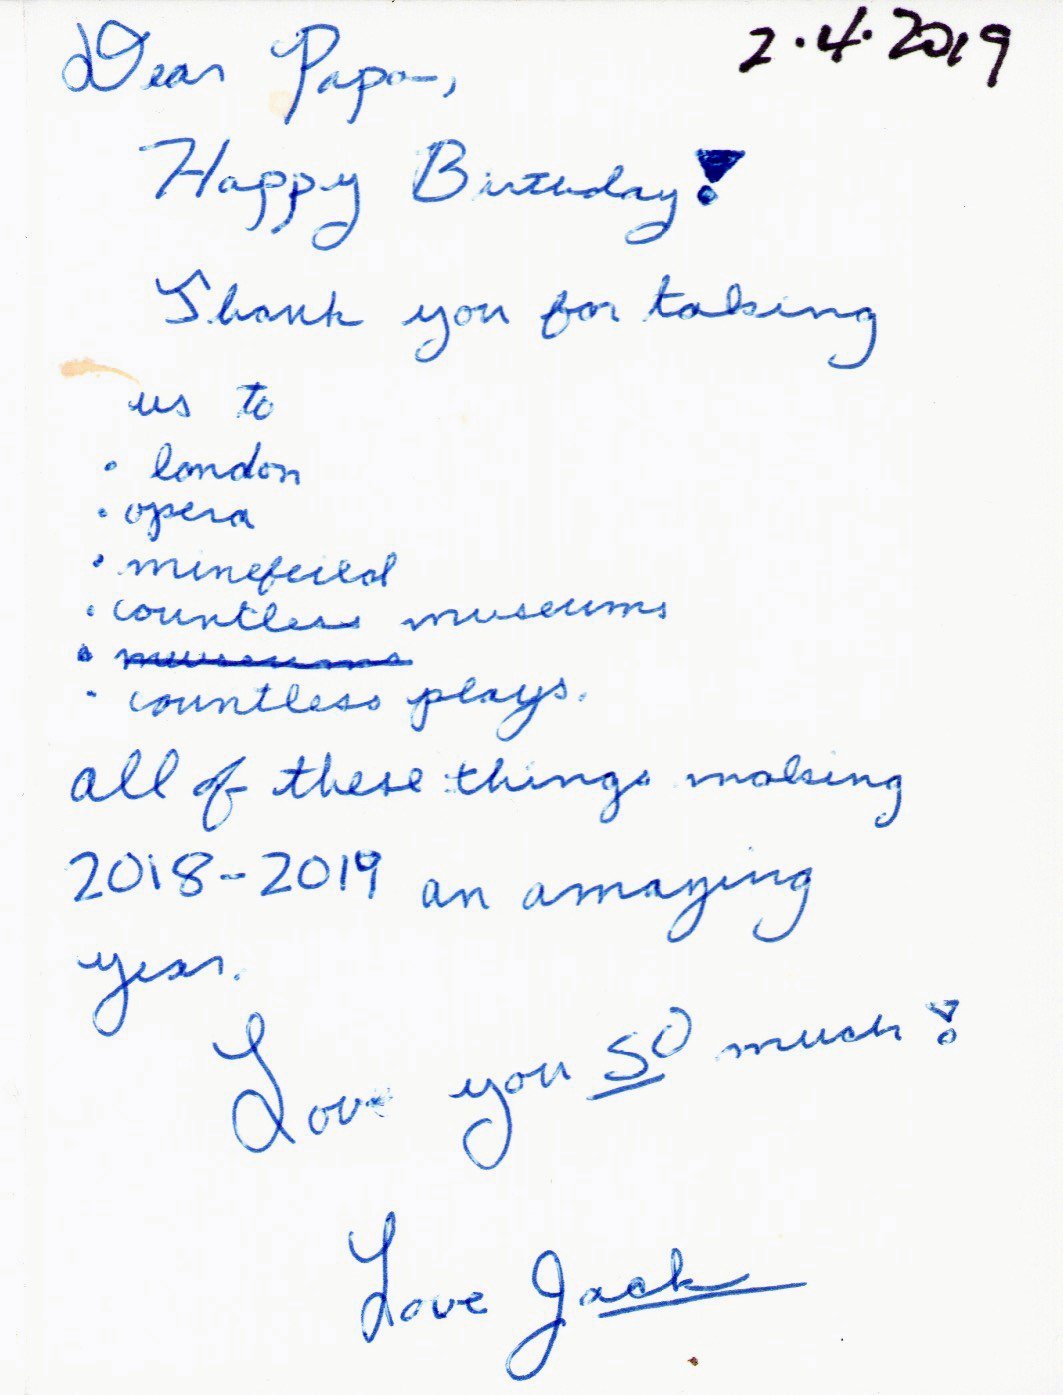 2.4.2019
Dear Papa,
Happy Birthday!
Thank you for taking
us to
• london
• opera
• minefeild
• countless museums
• museums
• countless plays.
all of these things making
2018-2019 an amazing
year.
Love you SO much!
Love Jack